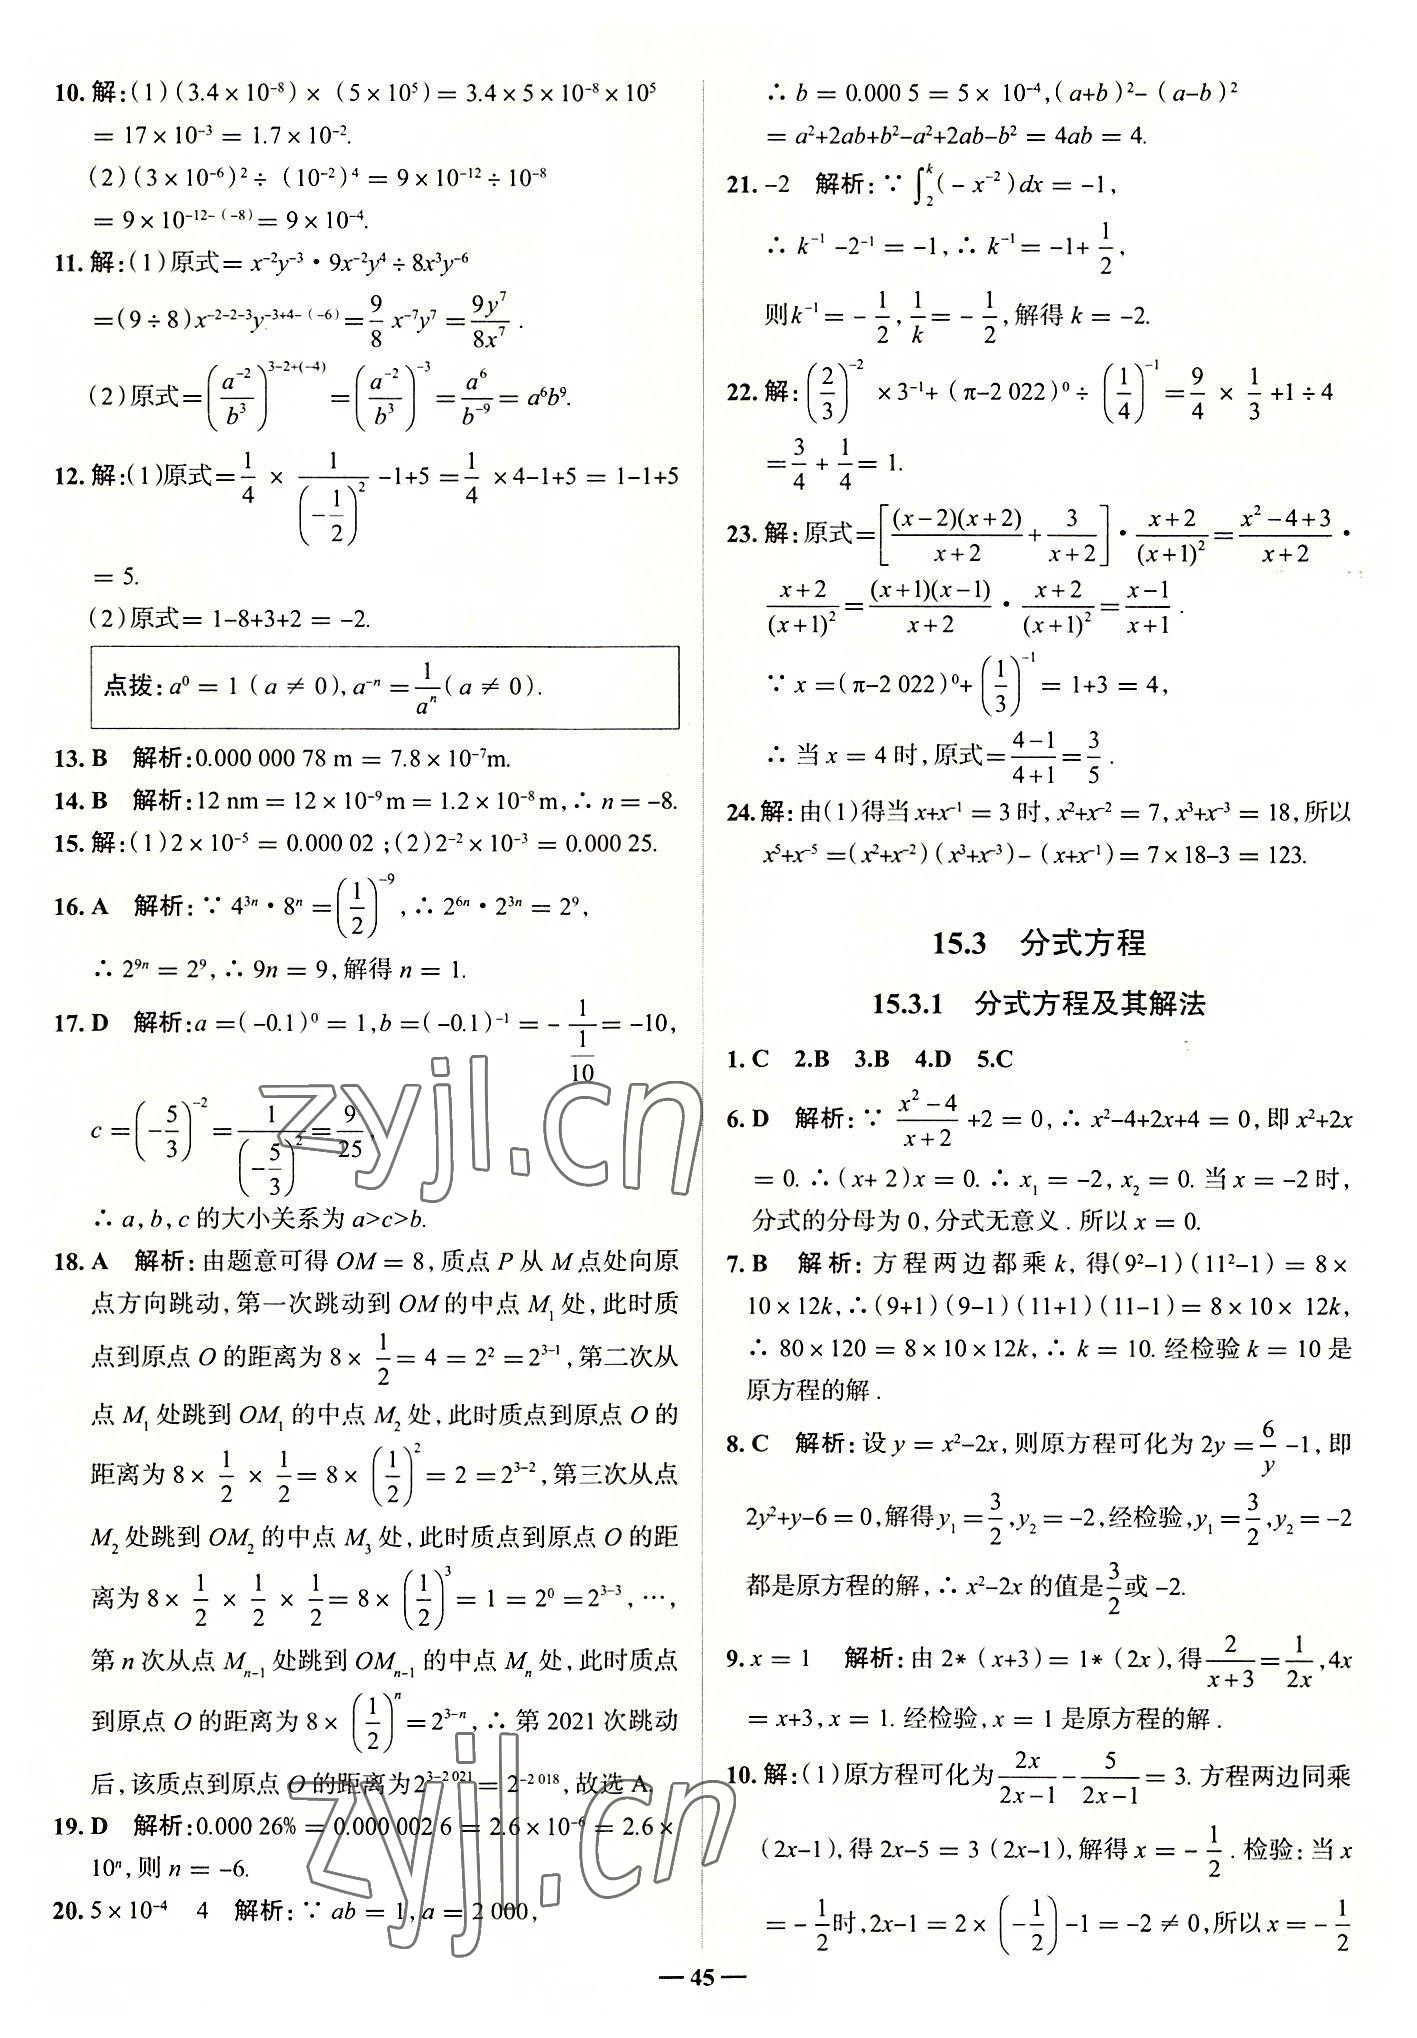 10. 解:(1)(3.4×10⁻⁸)×(5×10⁵)=3.4×5×10⁻⁸×10⁵
=17×10⁻³=1.7×10⁻².
(2)(3×10⁻⁶)²÷(10⁻²)⁴=9×10⁻¹²÷10⁻⁸
=9×10⁻¹²⁻⁽⁻⁸⁾=9×10⁻⁴.
11. 解:(1)原式=x⁻²y⁻³·9x⁻²y⁴÷8x³y⁻⁶
=(9÷8)x⁻²⁻²⁻³y⁻³⁺⁴⁻⁽⁻⁶⁾=9/8 x⁻⁷y⁷=9y⁷/8x⁷.
(2)原式=(a⁻²/b³)³⁻²⁺⁽⁻⁴⁾=(a⁻²/b³)⁻³=a⁶/b⁻⁹=a⁶b⁹.
12. 解:(1)原式=1/4×1/(-1/2)²-1+5=1/4×4-1+5=1-1+5
=5.
(2)原式=1-8+3+2=-2.
点拨:a⁰=1(a≠0),a⁻ⁿ=1/aⁿ(a≠0).
13. B 解析:0.000 000 78 m=7.8×10⁻⁷m.
14. B 解析:12 nm=12×10⁻⁹m=1.2×10⁻⁸m,∴n=-8.
15. 解:(1)2×10⁻⁵=0.000 02;(2)2⁻²×10⁻³=0.000 25.
16. A 解析:∵4³ⁿ·8ⁿ=(1/2)⁻⁹,∴2⁶ⁿ·2³ⁿ=2⁹,
∴2⁹ⁿ=2⁹,∴9n=9,解得n=1.
17. D 解析:a=(-0.1)⁰=1,b=(-0.1)⁻¹=-1/(1/10)=-10,
c=(-5/3)⁻²=1/(-5/3)²=9/25.
∴a,b,c的大小关系为a>c>b.
18. A 解析:由题意可得OM=8,质点P从M点处向原
点方向跳动,第一次跳动到OM的中点M₁处,此时质
点到原点O的距离为8×1/2=4=2²=2³⁻¹,第二次从
点M₁处跳到OM₁的中点M₂处,此时质点到原点O的
距离为8×1/2×1/2=8×(1/2)²=2=2³⁻²,第三次从点
M₂处跳到OM₂的中点M₃处,此时质点到原点O的距
离为8×1/2×1/2×1/2=8×(1/2)³=1=2⁰=2³⁻³,…,
第n次从点Mₙ₋₁处跳到OMₙ₋₁的中点Mₙ处,此时质点
到原点O的距离为8×(1/2)ⁿ=2³⁻ⁿ,∴第2021次跳动
后,该质点到原点O的距离为2³⁻²⁰²¹=2⁻²⁰¹⁸,故选A.
19. D 解析:0.000 26%=0.000 002 6=2.6×10⁻⁶=2.6×
10ⁿ,则n=-6.
20. 5×10⁻⁴ 4 解析:∵ab=1,a=2 000,
∴b=0.000 5=5×10⁻⁴,(a+b)²-(a-b)²
=a²+2ab+b²-a²+2ab-b²=4ab=4.
21. -2 解析:∵∫₂ᵏ(-x⁻²)dx=-1,
∴k⁻¹-2⁻¹=-1,∴k⁻¹=-1+1/2,
则k⁻¹=-1/2,1/k=-1/2,解得k=-2.
22. 解:(2/3)⁻²×3⁻¹+(π-2 022)⁰÷(1/4)⁻¹=9/4×1/3+1÷4
=3/4+1/4=1.
23. 解:原式=[(x-2)(x+2)/(x+2)+3/(x+2)]·(x+2)/(x+1)²=(x²-4+3)/(x+2)·
(x+2)/(x+1)²=(x+1)(x-1)/(x+2)·(x+2)/(x+1)²=(x-1)/(x+1).
∵x=(π-2 022)⁰+(1/3)⁻¹=1+3=4,
∴当x=4时,原式=(4-1)/(4+1)=3/5.
24. 解:由(1)得当x+x⁻¹=3时,x²+x⁻²=7,x³+x⁻³=18,所以
x⁵+x⁻⁵=(x²+x⁻²)(x³+x⁻³)-(x+x⁻¹)=7×18-3=123.
15.3 分式方程
15.3.1 分式方程及其解法
1. C 2. B 3. B 4. D 5. C
6. D 解析:∵(x²-4)/(x+2)+2=0,∴x²-4+2x+4=0,即x²+2x
=0.∴(x+2)x=0.∴x₁=-2,x₂=0.当x=-2时,
分式的分母为0,分式无意义.所以x=0.
7. B 解析:方程两边都乘k,得(9²-1)(11²-1)=8×
10×12k,∴(9+1)(9-1)(11+1)(11-1)=8×10×12k,
∴80×120=8×10×12k,∴k=10.经检验k=10是
原方程的解.
8. C 解析:设y=x²-2x,则原方程可化为2y=6/y-1,即
2y²+y-6=0,解得y₁=3/2,y₂=-2,经检验,y₁=3/2,y₂=-2
都是原方程的解,∴x²-2x的值是3/2或-2.
9. x=1 解析:由2*(x+3)=1*(2x),得2/(x+3)=1/2x,4x
=x+3,x=1.经检验,x=1是原方程的解.
10. 解:(1)原方程可化为2x/(2x-1)-5/(2x-1)=3.方程两边同乘
(2x-1),得2x-5=3(2x-1),解得x=-1/2.检验:当x
=-1/2时,2x-1=2×(-1/2)-1=-2≠0,所以x=-1/2
— 45 —
zyjl.cn
zyjl.cn